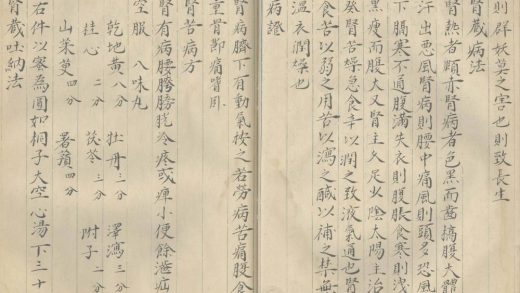 則群妖莫之害也則致長生
腎蔵病法
腎熱者頰赤腎病者色黑而齒槁腹大體
汗出悪風腎病則腰中痛風則頭多恐風
下膈塞不通腹滿失衣則腹脹食寒則洩
黑瘦而腹大又腎主久足少陰太陽主治
癸腎苦燥急食辛以潤之致液氣通也腎
食苦以弱之用苦以瀉之鹹以補之禁無
温衣潤燥也
病證
腎病臍下有動氣按之若勞病苦痛腹食
重骨節痛嗜卧
腎苦病方
腎有病腰膀胱冷疼或痺小便餘瀝疝
空服 八味丸
乾地黄八分 牡丹三分 澤瀉三分
桂心二分 茯苓三分 附子二分
山茱萸四分 署蕷四分
右件以宻為圓如桐子大空心湯下三十
腎蔵吐納法